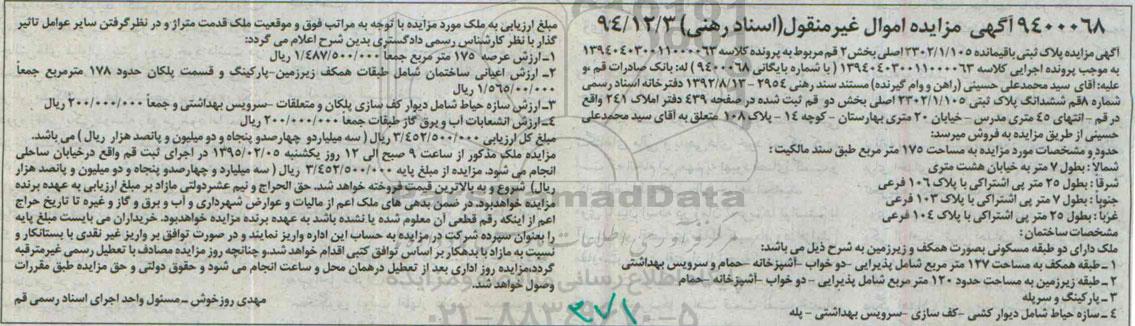 ۹۴۰۰۰۶۸ آگهی مزایده اموال غیرمنقول (اسناد رهنی) ۹۴/۱۲/۳
آگهی مزایده پلاک ثبتی باقیمانده ۲۳۰۲/۱/۱۰۵ اصلی بخش ۲ قم مربوط به پرونده کلاسه ۱۳۹۴۰۴۰۳۰۰۱۱۰۰۰۰۶۳
به موجب پرونده اجرایی کلاسه ۱۳۹۴۰۴۰۳۰۰۱۱۰۰۰۰۶۳ (با شماره بایگانی ۹۴۰۰۰۶۸) له: بانک صادرات قم و
علیه: آقای سید محمدعلی حسینی (راهن و وام گیرنده) مستند سند رهنی ۲۹۵۴ - ۱۳۹۲/۸/۱۳ دفترخانه اسناد رسمی
شماره ۸ قم ششدانگ پلاک ثبتی ۲۳۰۲/۱/۱۰۵ اصلی بخش دو قم ثبت شده در صفحه ۴۳۹ دفتر املاک ۲۴۱ واقع
در قم - انتهای ۴۵ متری مدرس - خیابان ۲۰ متری بهارستان - کوچه ۱۴ - پلاک ۱۰۸ متعلق به آقای سید محمدعلی
حسینی از طریق مزایده به فروش میرسد:
حدود و مشخصات مورد مزایده به مساحت ۱۷۵ متر مربع طبق سند مالکیت:
شمالا: بطول ۷ متر به خیابان هشت متری
شرقا: بطول ۲۵ متر پی اشتراکی با پلاک ۱۰۶ فرعی
جنوبا: بطول ۷ متر پی اشتراکی با پلاک ۱۰۳ فرعی
غربا: بطول ۲۵ متر پی اشتراکی با پلاک ۱۰۴ فرعی
مشخصات ساختمان:
ملک دارای دو طبقه مسکونی بصورت همکف و زیرزمین به شرح ذیل می باشد:
۱- طبقه همکف به مساحت ۱۲۷ متر مربع شامل پذیرایی - دو خواب - آشپزخانه - حمام و سرویس بهداشتی
۲- طبقه زیرزمین به مساحت حدود ۱۲۰ متر مربع شامل پذیرایی - دو خواب - آشپزخانه - حمام
۳- پارکینگ و سرپله
۴- سازه حیاط شامل دیوار کشی - کف سازی - سرویس بهداشتی - پله
مبلغ ارزیابی به ملک مورد مزایده با توجه به مراتب فوق و موقعیت ملک قدمت متراژ و در نظر گرفتن سایر عوامل تاثیر
گذار با نظر کارشناس رسمی دادگستری بدین شرح اعلام می گردد:
۱- ارزش عرصه ۱۷۵ متر مربع جمعاً ۱/۴۸۷/۵۰۰/۰۰۰ ریال
۲- ارزش اعیانی ساختمان شامل طبقات همکف زیرزمین - پارکینگ و قسمت پلکان حدود ۱۷۸ مترمربع جمعاً
۱/۵۶۵/۰۰/۰۰۰ ریال
۳- ارزش سازه حیاط شامل دیوار کف سازی پلکان و متعلقات - سرویس بهداشتی و جمعاً ۲۰۰/۰۰۰/۰۰۰ ریال
۴- ارزش انشعابات آب و برق گاز طبقات جمعاً ۲۰۰/۰۰۰/۰۰۰ ریال
مبلغ کل ارزیابی ۳/۴۵۲/۵۰۰/۰۰۰ ریال (سه میلیاردو چهارصدو پنجاه و دو میلیون و پانصد هزار ریال) می باشد.
مزایده ملک مذکور از ساعت ۹ صبح الی ۱۲ روز یکشنبه ۱۳۹۵/۰۲/۰۵ در اجرای ثبت قم واقع در خیابان ساحلی
انجام می شود. مزایده از مبلغ پایه ۳/۴۵۲/۵۰۰/۰۰۰ ریال (سه میلیارد و چهارصدو پنجاه و دو میلیون و پانصد هزار
ریال) شروع و به بالاترین قیمت فروخته خواهد شد. حق الحراج و نیم عشردولتی مازاد بر مبلغ ارزیابی به عهده برنده
مزایده خواهدبود. در ضمن بدهی های ملک اعم از مالیات و عوارض شهرداری و آب و برق و گاز و غیره تا تاریخ حراج
اعم از اینکه رقم قطعی آن معلوم شده یا نشده باشد به عهده برنده مزایده خواهدبود. خریداران می بایست مبلغ پایه
را بعنوان سپرده شرکت در مزایده به حساب این اداره واریز نمایند و در صورت توافق بر واریز غیر نقدی با بستانکار و
نسبت به مازاد با بدهکار بر اساس توافق کتبی اقدام خواهد شد. و چنانچه روز مزایده مصادف با تعطیل رسمی غیرمترقبه
گردد، مزایده روز اداری بعد از تعطیل درهمان محل و ساعت انجام می شود و حقوق دولتی و حق مزایده طبق مقررات
وصول خواهد شد.
مهدی روزخوش - مسئول واحد اجرای اسناد رسمی قم
۳۷۱
۰۲۱-۸۸۳۴۹۶۷۰-۵